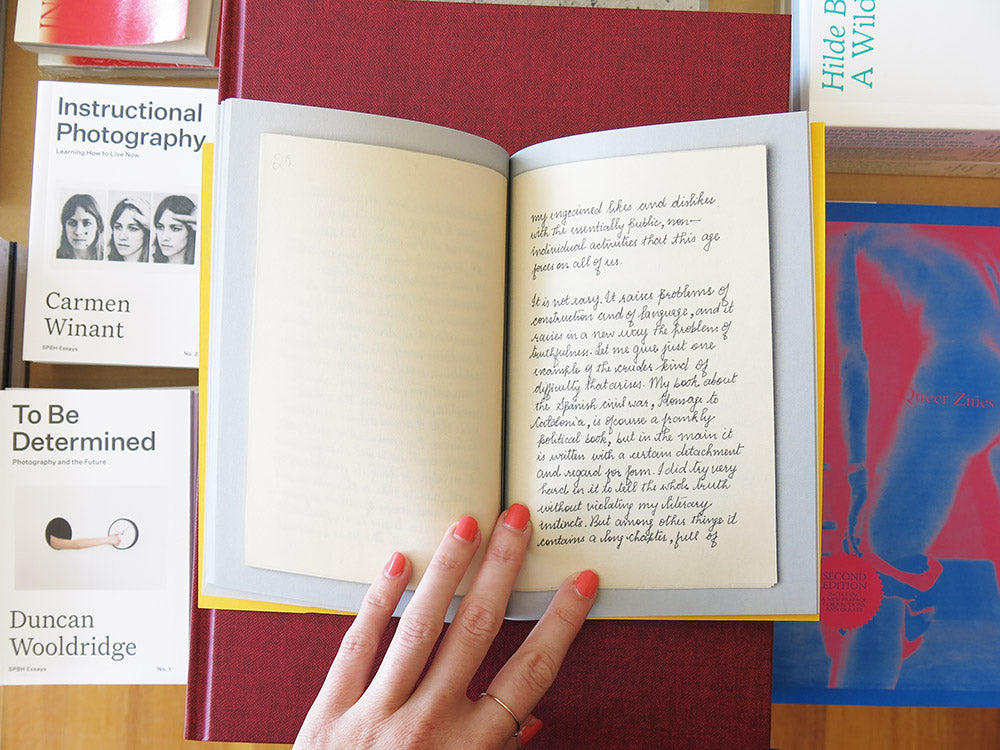 Instructional
Photography
Learning How to Live Now
Carmen
Winant
SPBH Essays
No. 2
To Be
Determined
Photography and the Future
Duncan
Wooldridge
SPBH Essays
No. 1
my ingrained likes and dislikes
with the essentially public, non-
individual activities that this age
forces on all of us.
It is not easy. It raises problems of
construction and of language, and it
raises in a new way the problem of
truthfulness. Let me give just one
example of the cruder kind of
difficulty that arises. My book about
the Spanish civil war, Homage to
Catalonia, is ofcourse a frankly
political book, but in the main it
is written with a certain detachment
and regard for form. I did try very
hard in it to tell the whole truth
without violating my literary
instincts. But among other things it
contains a long chapter, full of
Hilde B
A Wild
Queer Zines
SECOND
EDITION